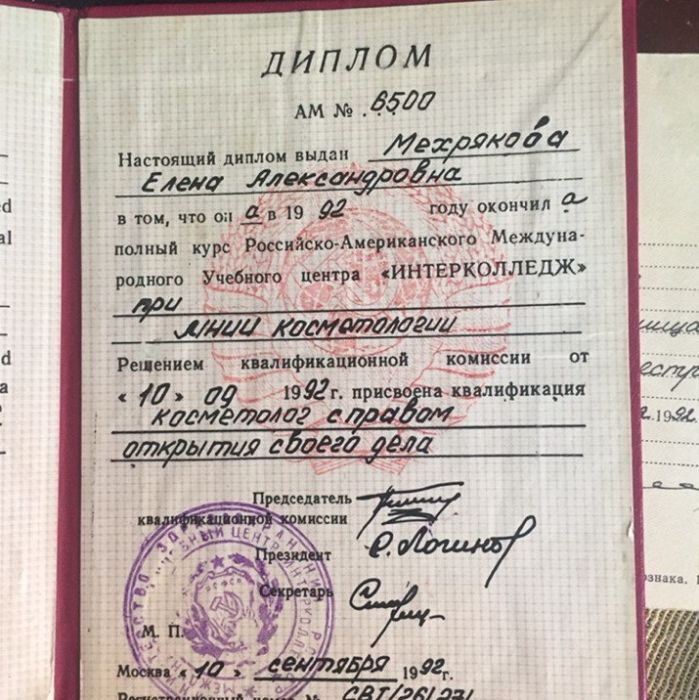 ДИПЛОМ
АМ № 6500
Настоящий диплом выдан Мехрякова
Елена Александровна
в том, что он а в 1992 году окончил а
полный курс Российско-Американского Междуна-
родного Учебного центра «ИНТЕРКОЛЛЕДЖ»
при
линии косметологии
Решением квалификационной комиссии от
«10» 09 1992 г. присвоена квалификация
косметолог с правом
открытия своего дела
Председатель
квалификационной комиссии
Президент
С. Логинов
Секретарь
М. П.
Москва «10» сентября 1992 г.
Регистрационный № СВТ/261/271